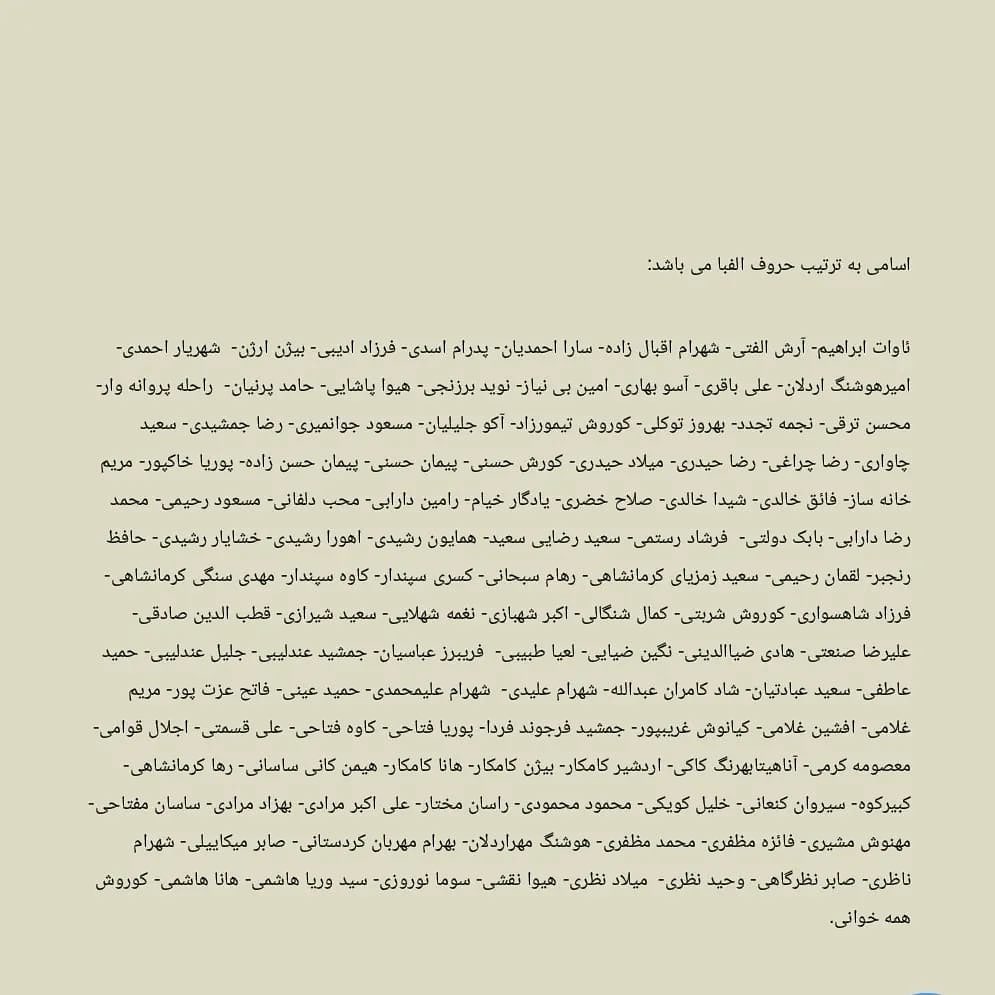 اسامی به ترتیب حروف الفبا می باشد:
ئاوات ابراهیم- آرش الفتی- شهرام اقبال زاده- سارا احمدیان- پدرام اسدی- فرزاد ادیبی- بیژن ارژن- شهریار احمدی-
امیرهوشنگ اردلان- علی باقری- آسو بهاری- امین بی نیاز- نوید برزنجی- هیوا پاشایی- حامد پرنیان- راحله پروانه وار-
محسن ترقی- نجمه تجدد- بهروز توکلی- کوروش تیمورزاد- آکو جلیلیان- مسعود جوانمیری- رضا جمشیدی- سعید
چاواری- رضا چراغی- رضا حیدری- میلاد حیدری- کورش حسنی- پیمان حسنی- پیمان حسن زاده- پوریا خاکپور- مریم
خانه ساز- فائق خالدی- شیدا خالدی- صلاح خضری- یادگار خیام- رامین دارابی- محب دلفانی- مسعود رحیمی- محمد
رضا دارابی- بابک دولتی- فرشاد رستمی- سعید رضایی سعید- همایون رشیدی- اهورا رشیدی- خشایار رشیدی- حافظ
رنجبر- لقمان رحیمی- سعید زمزیای کرمانشاهی- رهام سبحانی- کسری سپندار- کاوه سپندار- مهدی سنگی کرمانشاهی-
فرزاد شاهسواری- کوروش شربتی- کمال شنگالی- اکبر شهبازی- نغمه شهلایی- سعید شیرازی- قطب الدین صادقی-
علیرضا صنعتی- هادی ضیاالدینی- نگین ضیایی- لعیا طبیبی- فریبرز عباسیان- جمشید عندلیبی- جلیل عندلیبی- حمید
عاطفی- سعید عبادتیان- شاد کامران عبدالله- شهرام علیدی- شهرام علیمحمدی- حمید عینی- فاتح عزت پور- مریم
غلامی- افشین غلامی- کیانوش غریبپور- جمشید فرجوند فردا- پوریا فتاحی- کاوه فتاحی- علی قسمتی- اجلال قوامی-
معصومه کرمی- آناهیتابهرنگ کاکی- اردشیر کامکار- بیژن کامکار- هانا کامکار- هیمن کانی ساسانی- رها کرمانشاهی-
کبیرکوه- سیروان کنعانی- خلیل کویکی- محمود محمودی- راسان مختار- علی اکبر مرادی- بهزاد مرادی- ساسان مفتاحی-
مهنوش مشیری- فائزه مظفری- محمد مظفری- هوشنگ مهراردلان- بهرام مهربان کردستانی- صابر میکاییلی- شهرام
ناظری- صابر نظرگاهی- وحید نظری- میلاد نظری- هیوا نقشی- سوما نوروزی- سید وریا هاشمی- هانا هاشمی- کوروش
همه خوانی.